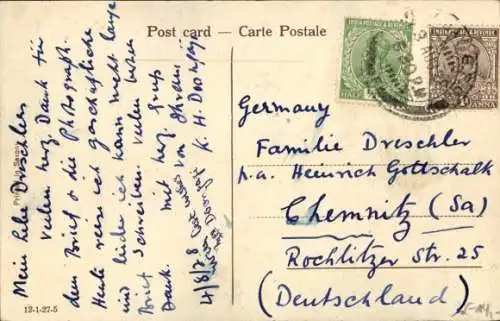 Post card — Carte Postale
Mein liebe Dreschlers
Vielen herz. Dank für
den Brief & die Photograph.
Heute reise ich geschäftliche
und leider ich kann nicht lange
Brief schreiben. Vielen
Dank. mit herz. Gruss
von Ihrem
K. H.
4/8/28
Printed in Saxony
12-1-27-5
INDIA POSTAGE & REVENUE
HALF
ANNA
Germany
Familie Dreschler
p.a. Heinrich Gottschalk
Chemnitz (Sa)
Rochlitzer Str. 25
(Deutschland)